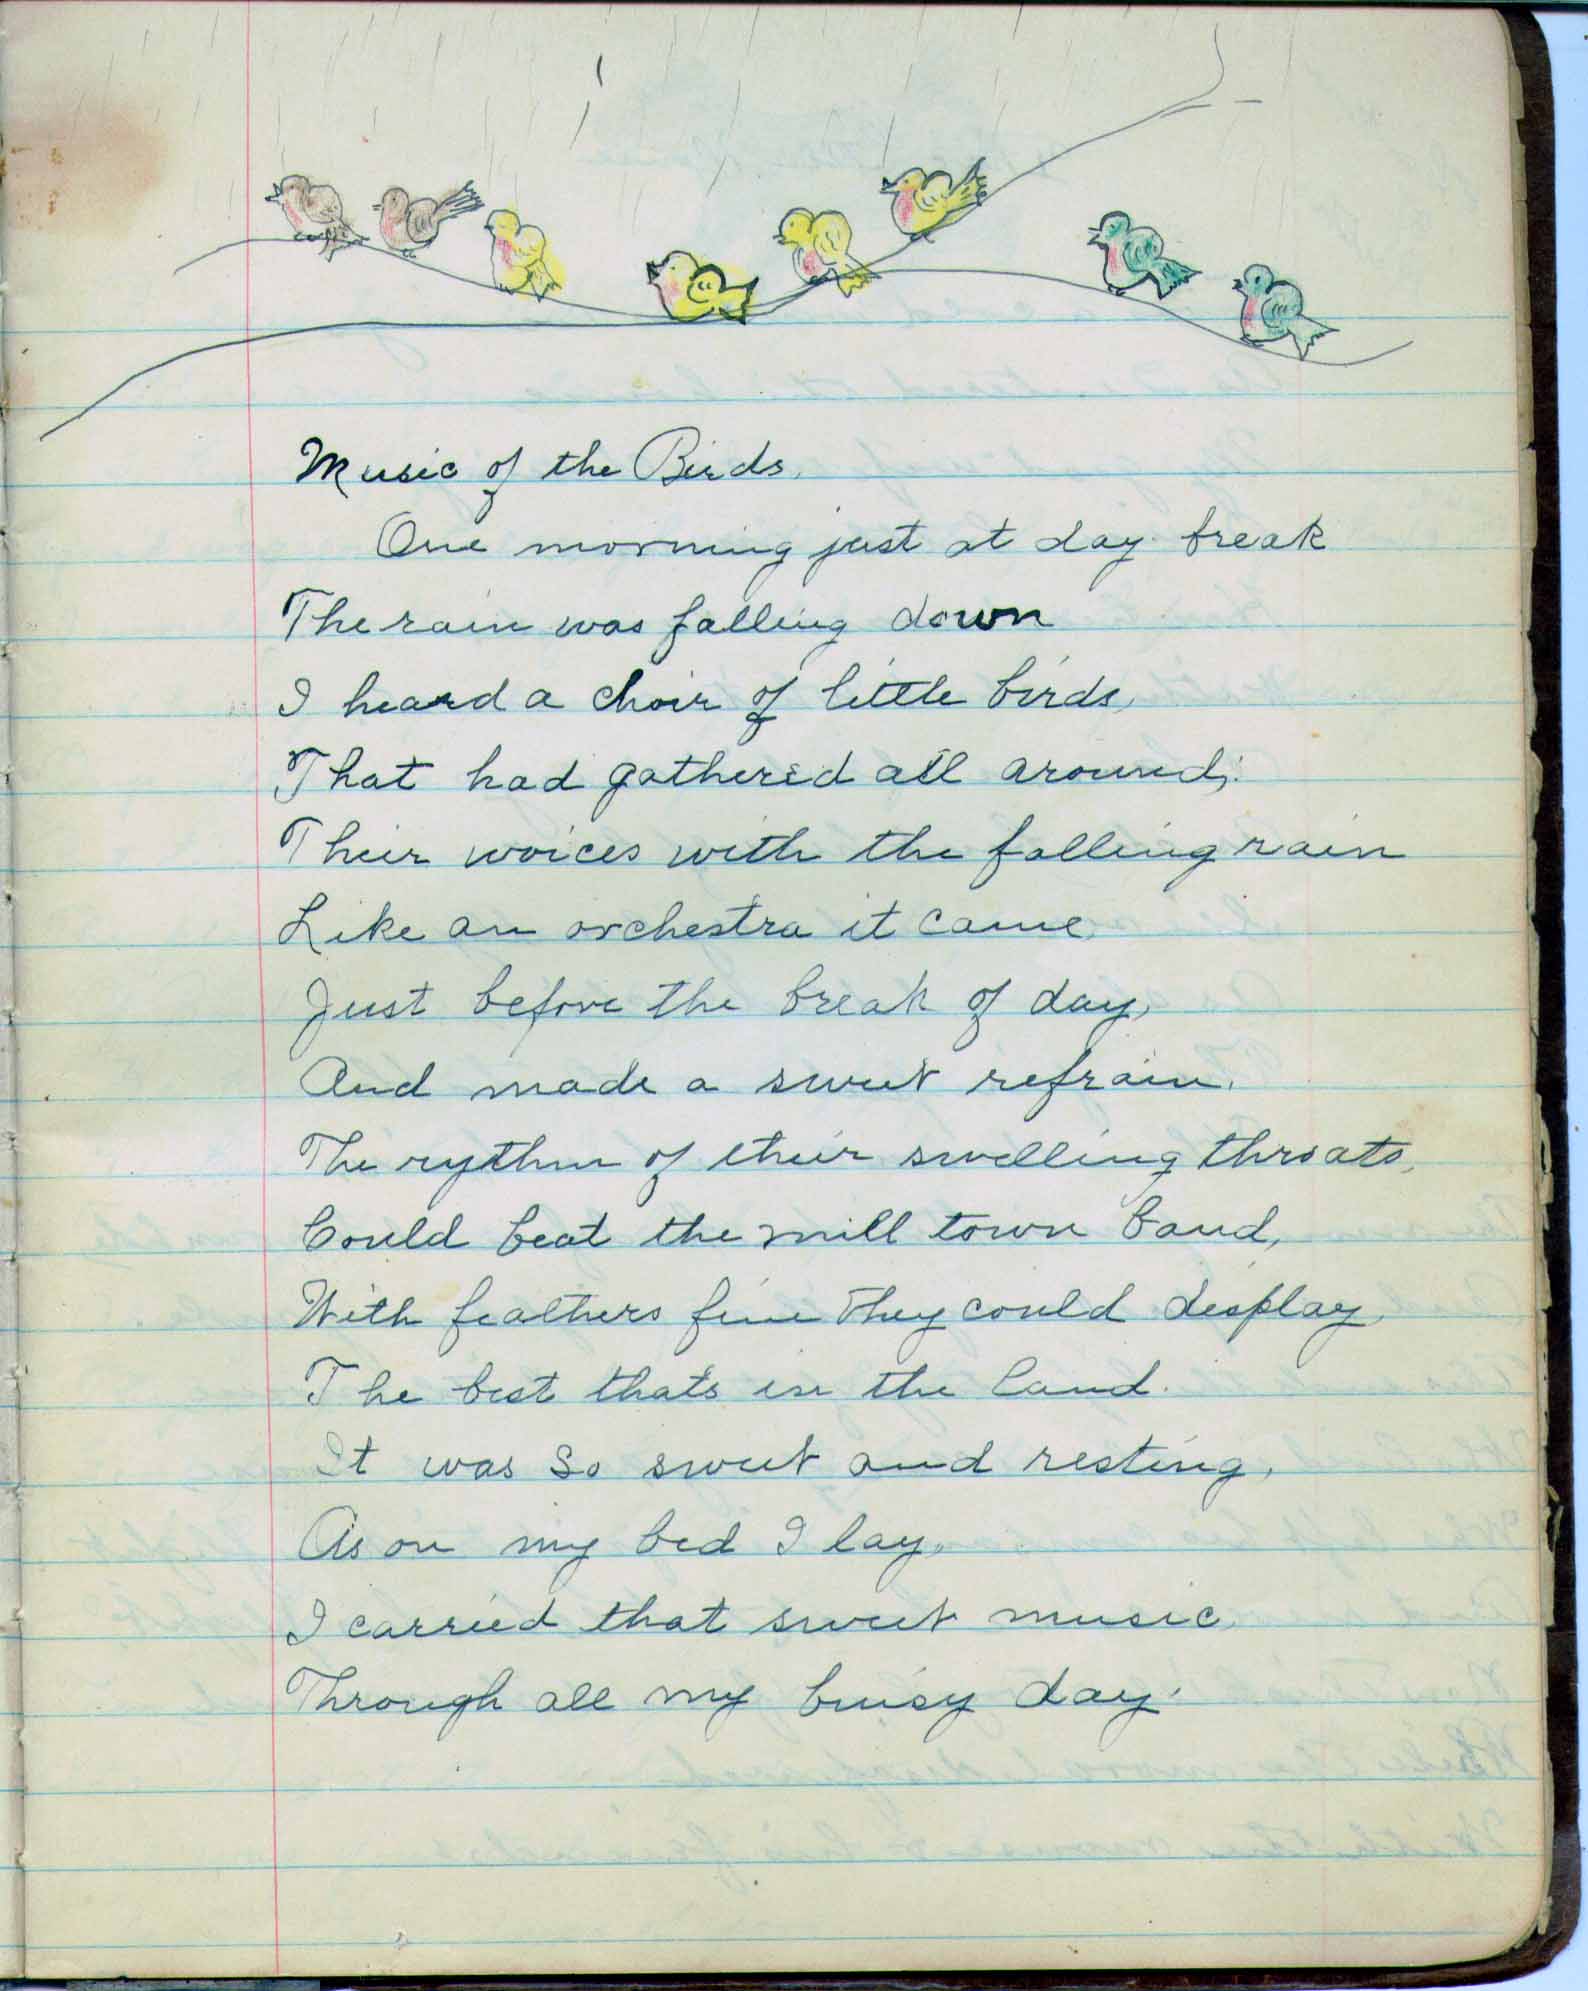 Music of the Birds.
One morning just at day break
The rain was falling down
I heard a choir of little birds,
That had gathered all around;
Their voices with the falling rain
Like an orchestra it came,
Just before the break of day,
And made a sweet refrain.
The rythm of their swelling throats,
Could beat the mill town band,
With feathers fine They could display,
The best that's in the land.
It was so sweet and resting,
As on my bed I lay,
I carried that sweet music,
Through all my buisy day.